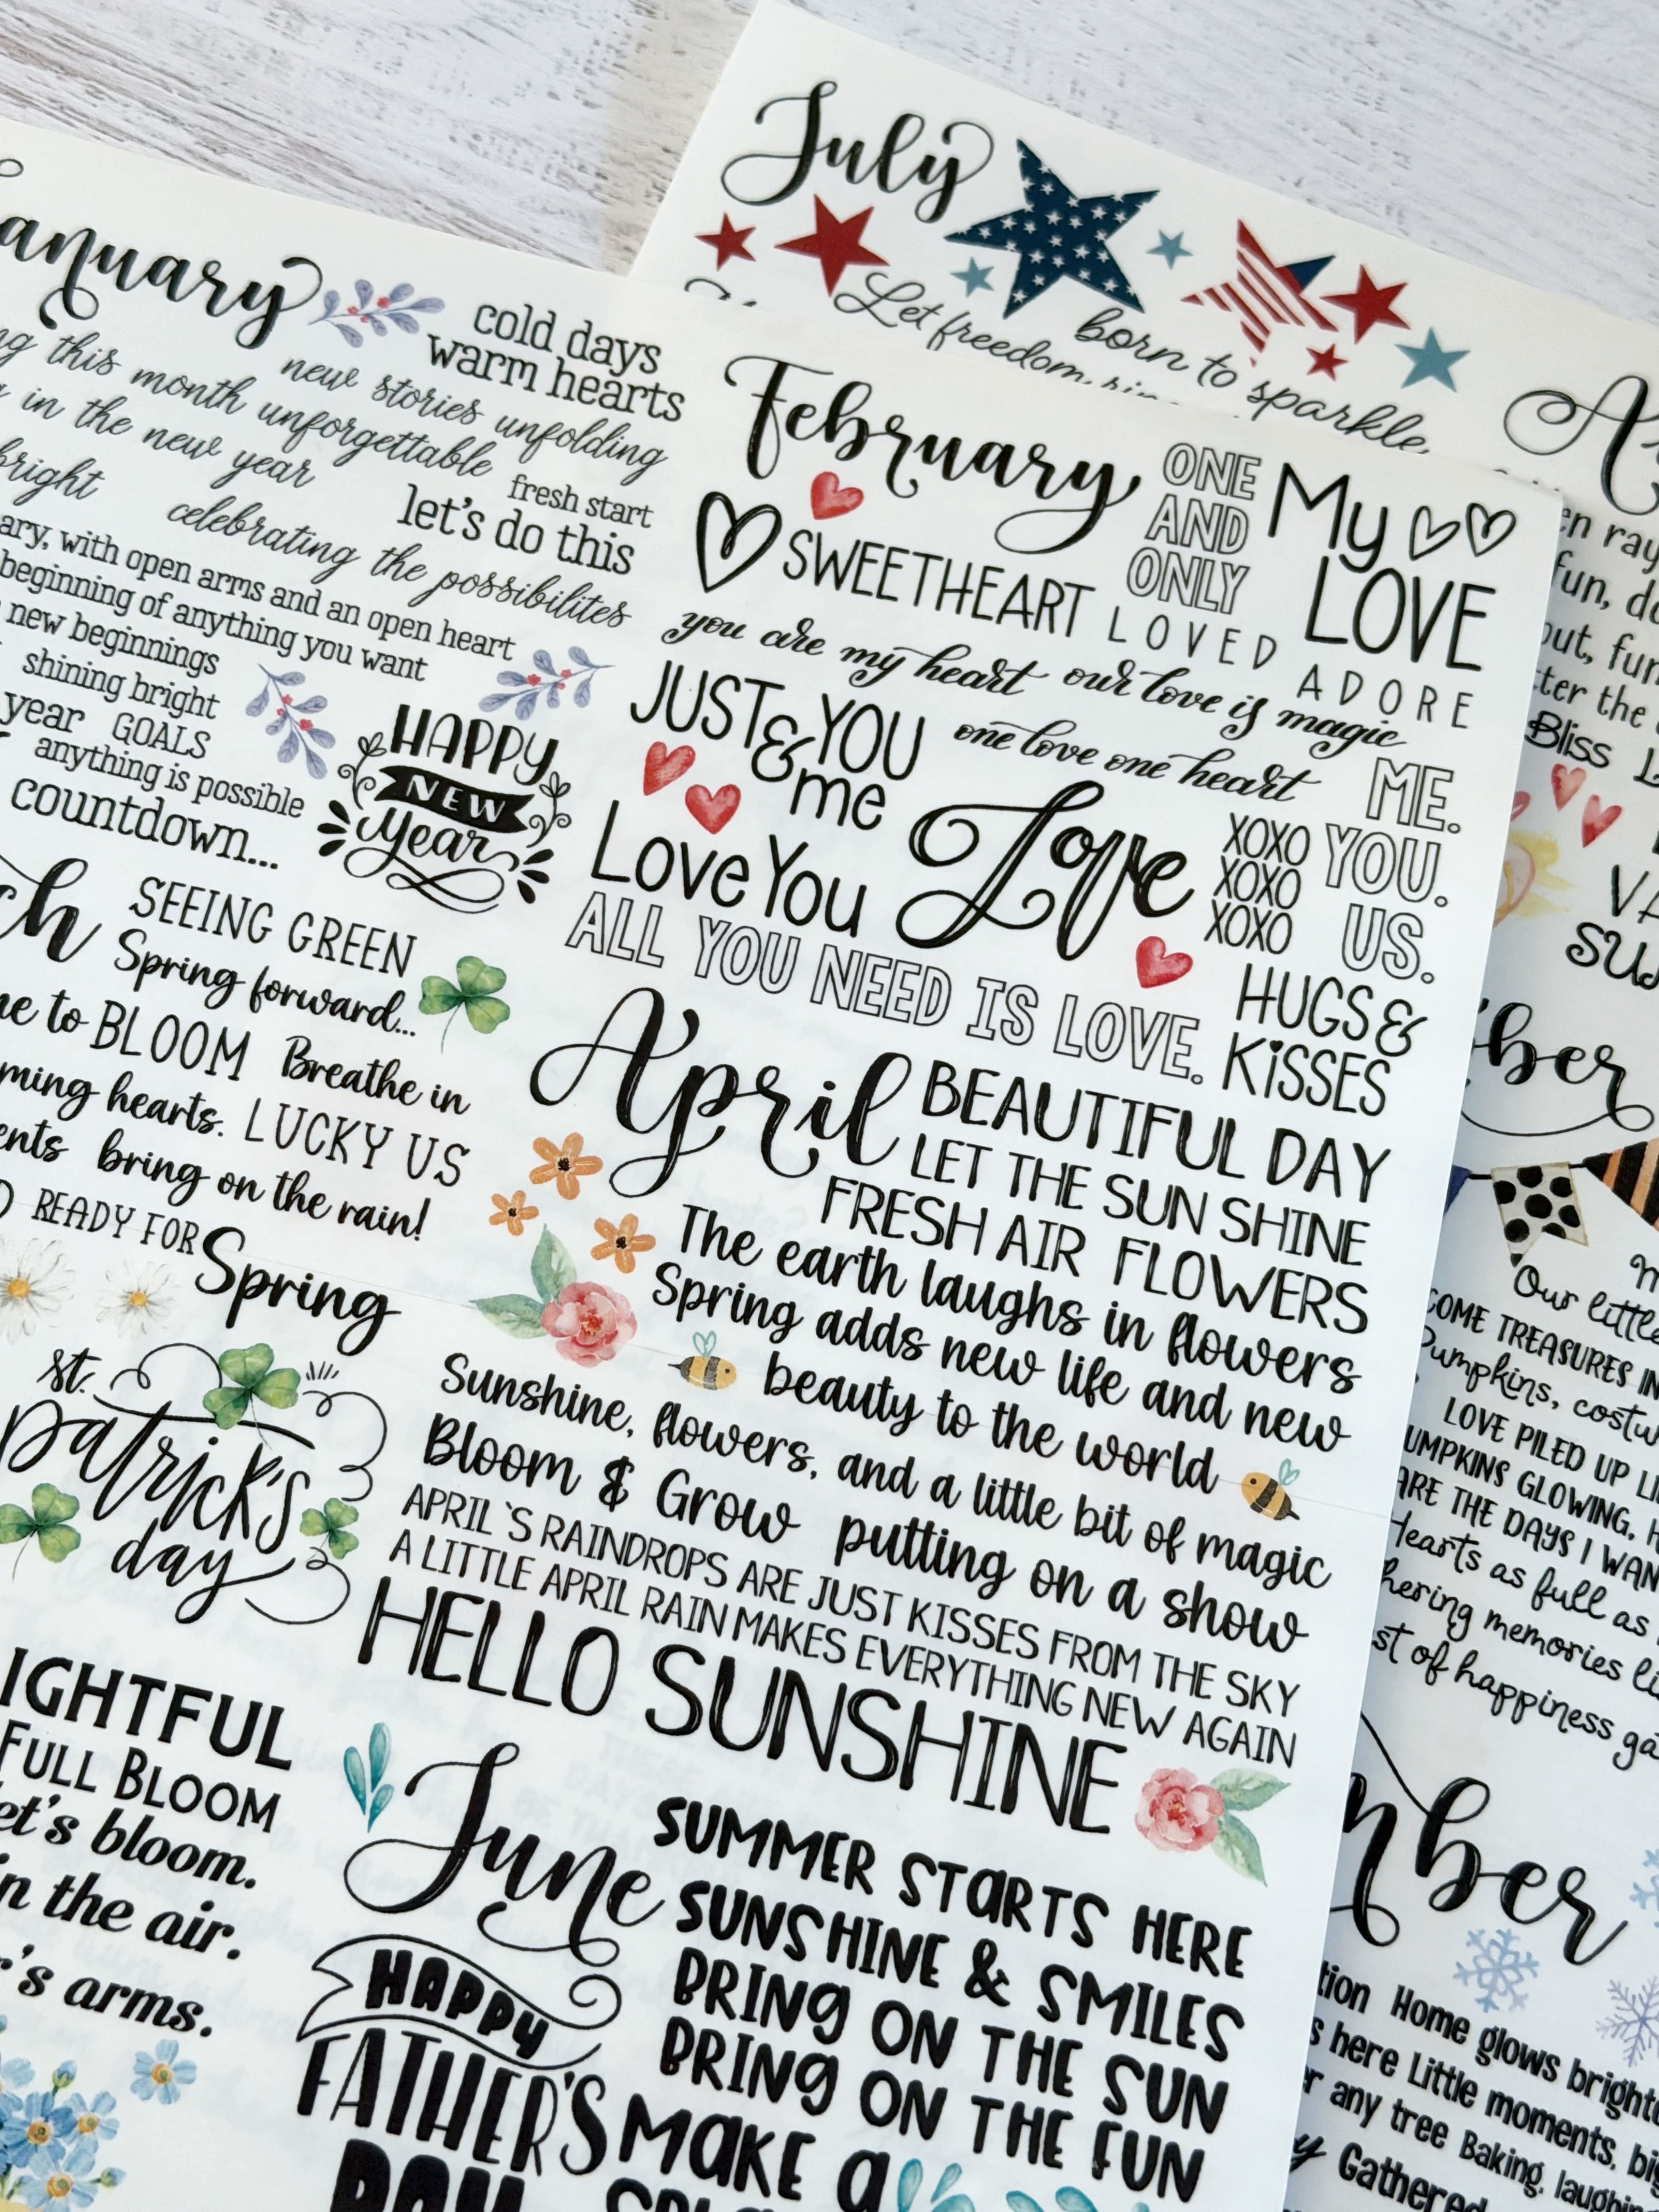 July
Let freedom
born to sparkle
January
cold days
warm hearts
new stories unfolding
this month unforgettable
in the new year
bright
fresh start
let's do this
celebrating the possibilites
with open arms and an open heart
beginning of anything you want
new beginnings
shining bright
year GOALS
anything is possible
countdown...
HAPPY
NEW
year
February
ONE
AND
ONLY
My
LOVE
SWEETHEART
LOVED
ADORE
you are my heart
our love is magic
JUST YOU
& me
one love one heart
Love You
Love
XOXO
XOXO
XOXO
ME.
YOU.
US.
ALL YOU NEED IS LOVE.
HUGS &
KiSSES
SEEING GREEN
Spring forward...
to BLOOM
Breathe in
hearts.
LUCKY US
bring on the rain!
READY FOR
Spring
st.
patrick's
day
April
BEAUTIFUL DAY
LET THE SUN SHINE
FRESH AIR FLOWERS
The earth laughs in flowers
Spring adds new life and new
beauty to the world
Sunshine, flowers, and a little bit of magic
Bloom & Grow putting on a show
APRIL 'S RAINDROPS ARE JUST KISSES FROM THE SKY
A LITTLE APRIL RAIN MAKES EVERYTHING NEW AGAIN
HELLO SUNSHINE
FULL BLOOM
bloom.
in the air.
arms.
June
SUMMER STARTS HERE
SUNSHINE & SMILES
BRING ON THE SUN
BRING ON THE FUN
HAPPY
FATHER'S
DAY
MAKE a
Bliss
Our little
COME TREASURES IN
Pumpkins,
LOVE PILED UP
PUMPKINS GLOWING.
ARE THE DAYS I
Hearts as full as
memories
of happiness
Home glows
here Little moments,
any tree Baking,
Gathered